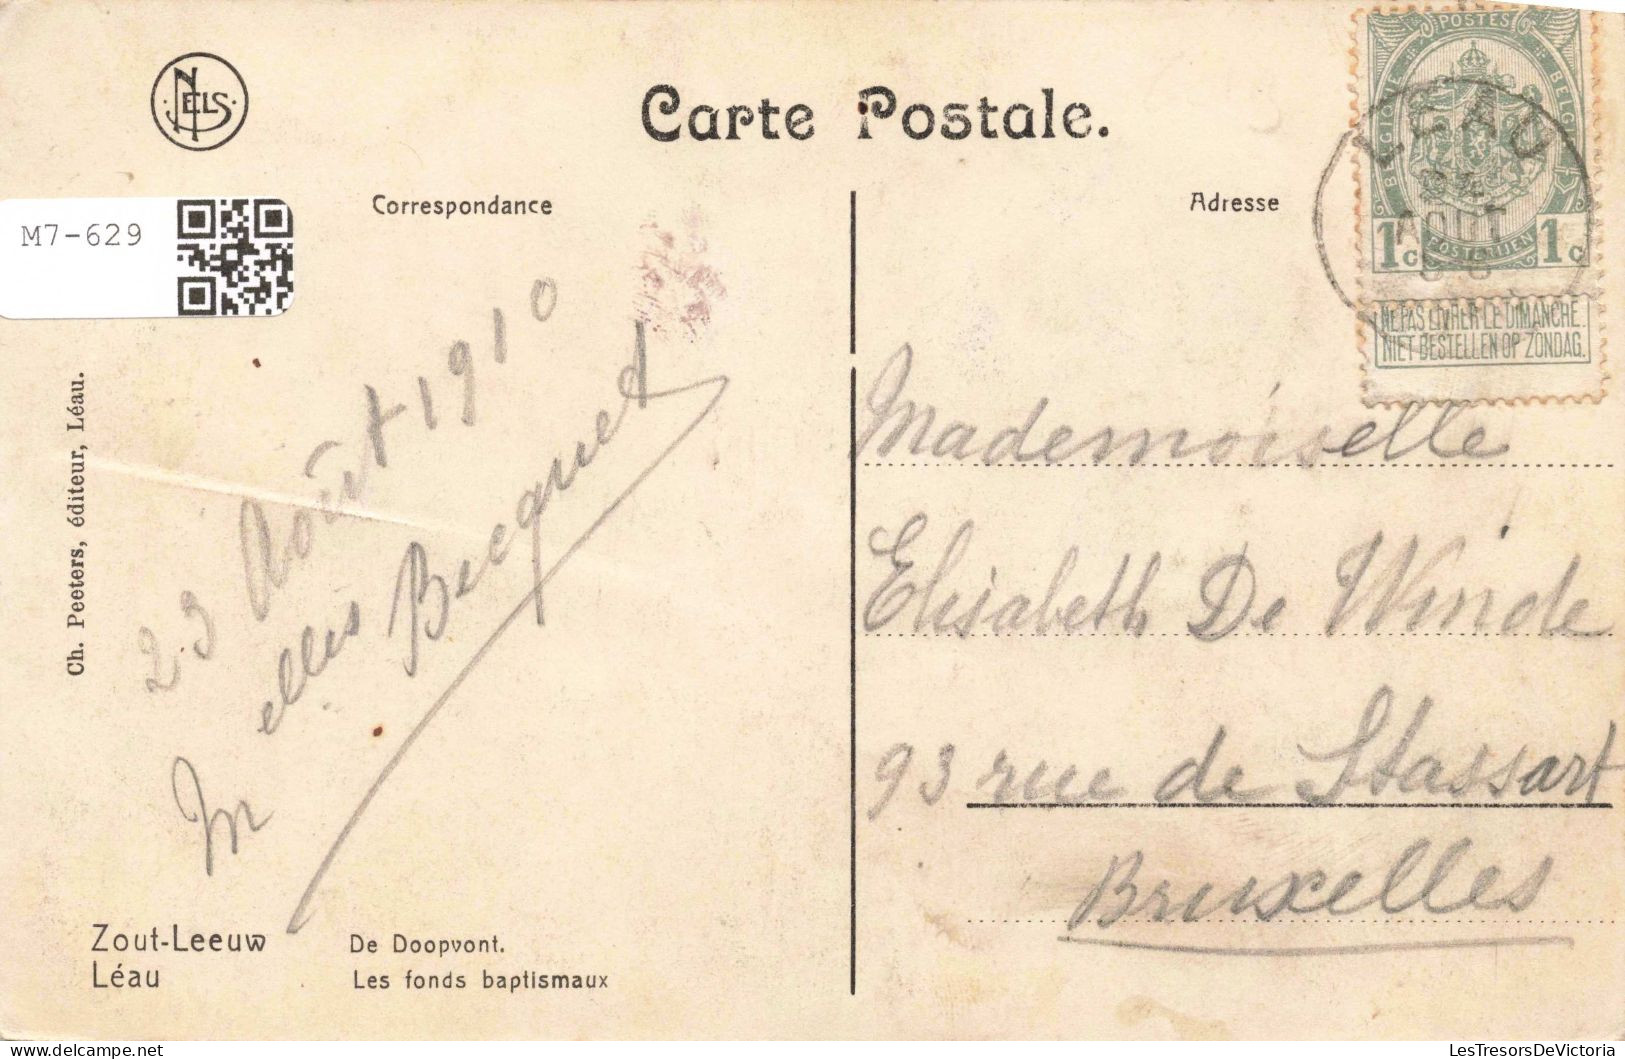 NELS
Carte Postale.
Correspondance
Adresse
M7-629
POSTES
BELGIQUE
BELGIË
POSTERIJEN
1c 1c
LEAU
24
AOUT
NE PAS LIVRER LE DIMANCHE.
NIET BESTELLEN OP ZONDAG.
23 Août 1910
Melles Becquet
Mademoiselle
Elisabeth De Winde
93 rue de Stassart
Bruxelles
Ch. Peeters, éditeur, Léau.
Zout-Leeuw De Doopvont.
Léau Les fonds baptismaux
LesTresorsDeVictoria